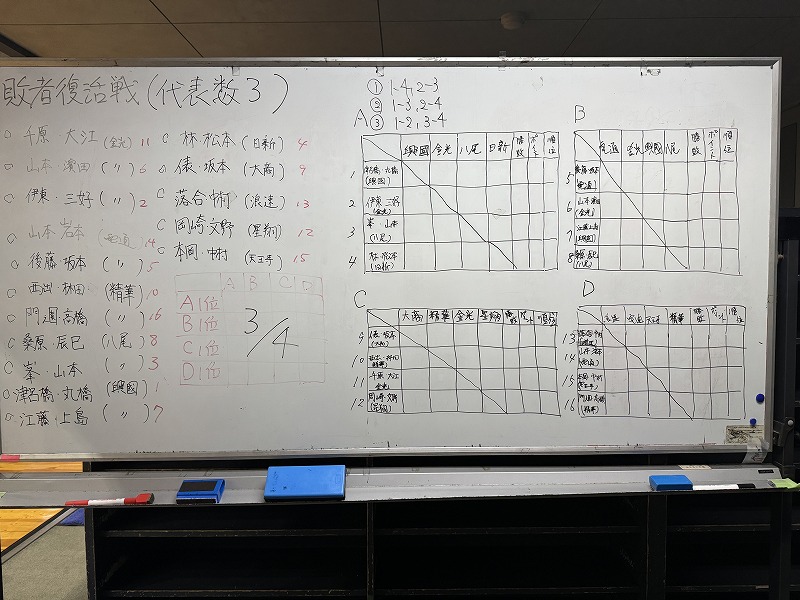 敗者復活戦(代表数3)
○ 千原・大江 (金光) 11
○ 山本・濱田 (〃) 6
○ 伊東・三好 (〃) 2
○ 山本 岩本 14
○ 後藤・坂本 (〃) 5
○ 西岡・林田 (精華) 10
○ 門田 高橋 (〃) 16
○ 桑原・辰巳 (八尾) 8
○ 峯・山本 (〃) 3
○ 津名橋・丸橋 (興國) 1
○ 江藤・上島 (〃) 7
○ 林・松本 (日新) 4
○ 俵・坂本 (大商) 9
○ 落合・中桐 (浪速) 13
○ 岡崎・文野 (星翔) 12
○ 本岡・中村 (天王寺) 15
A B C D
A1位
B1位
C1位
D1位
3/4
① 1-4, 2-3
② 1-3, 2-4
③ 1-2, 3-4
A
興國 金光 八尾 日新 勝敗 ポイント 順位
1 丸橋 (興國)
2 伊東 三好 (金光)
3 峯 山本 (八尾)
4 林 松本 (日新)
B
金光 興國 八尾 勝敗 ポイント 順位
5 後藤 坂本
6 山本 濱田 (金光)
7 江藤 上島 (興國)
8 桑原 辰巳 (八尾)
C
大商 精華 金光 星翔 勝敗 ポイント 順位
9 俵 坂本 (大商)
10 西岡 林田 (精華)
11 千原 大江 金光
12 岡崎 文野 (星翔)
D
天王寺 精華 勝敗 ポイント 順位
13 落合 中桐 (浪速)
14 山本 岩本
15 本岡 中村 (天王寺)
16 門田 高橋 (精華)